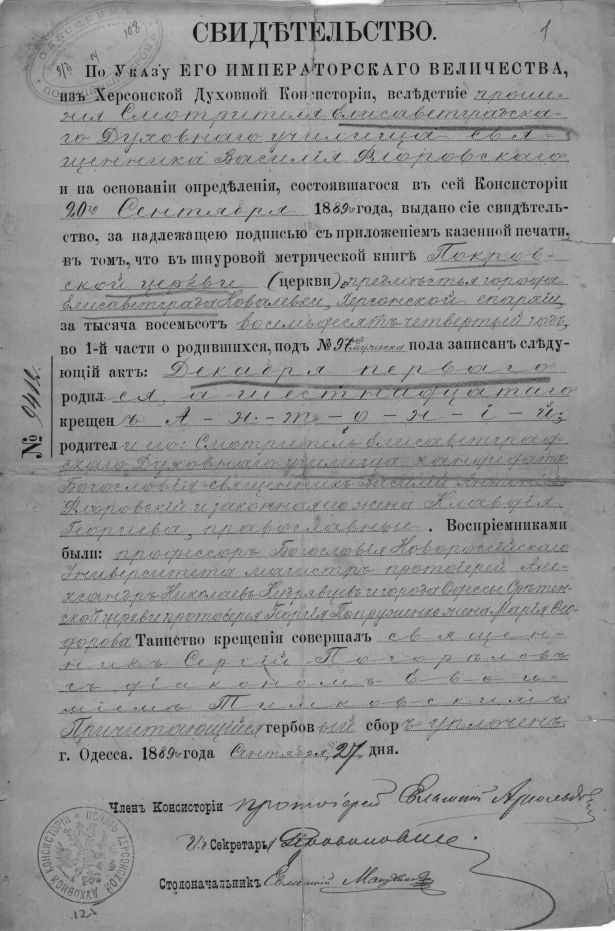 1
СВИДѢТЕЛЬСТВО.
По Указу ЕГО ИМПЕРАТОРСКАГО ВЕЛИЧЕСТВА,
изъ Херсонской Духовной Консисторіи, вслѣдствіе проше-
нія Смотрителя Елисаветградска-
го Духовнаго училища свя-
щенника Василія Флоровскаго
и на основаніи опредѣленія, состоявшагося въ сей Консисторіи
20го Сентября 1889 года, выдано сіе свидѣтель-
ство, за надлежащею подписью съ приложеніемъ казенной печати,
въ томъ, что въ шнуровой метрической книгѣ Покров-
ской церкви (церкви) предмѣстья города
Елисаветграда Ковалевки, Херсонской епархіи,
за тысяча восемьсотъ восемьдесятъ четвертый годъ,
во 1-й части о родившихся, подъ № 97 мужеска пола записанъ слѣду-
ющій актъ: Декабря перваго
родился, а шестнадцатаго
крещенъ А-н-т-о-н-і-й;
родители его: Смотритель Елисаветград-
скаго Духовнаго училища кандидатъ
Богословія священникъ Василій Антоновъ
Флоровскій и законная его жена Клавдія
Георгіева, православные. Воспріемниками
были: профессоръ Богословія Новороссійскаго
Университета магистръ протоіерей Але-
ксандръ Николаевъ Кудрявцевъ и города Одессы Срѣтен-
ской церкви протоіерея Георгія Попруженко жена Марія Ѳео-
дорова Таинство крещенія совершалъ священ-
никъ Сергій Погорѣловъ
съ діакономъ Евѳи-
міемъ Тимковскимъ
Причитающійся гербовый сборъ уплаченъ
г. Одесса. 1889 года Сентября 27 дня.
Членъ Консисторіи протоіерей Евлампій Арнольдов
Секретарь
Столоначальникъ Евлампій
№ 9412.
ДУХОВНОЙ КОНСИСТОРІИ ХЕРСОНСКОЙ